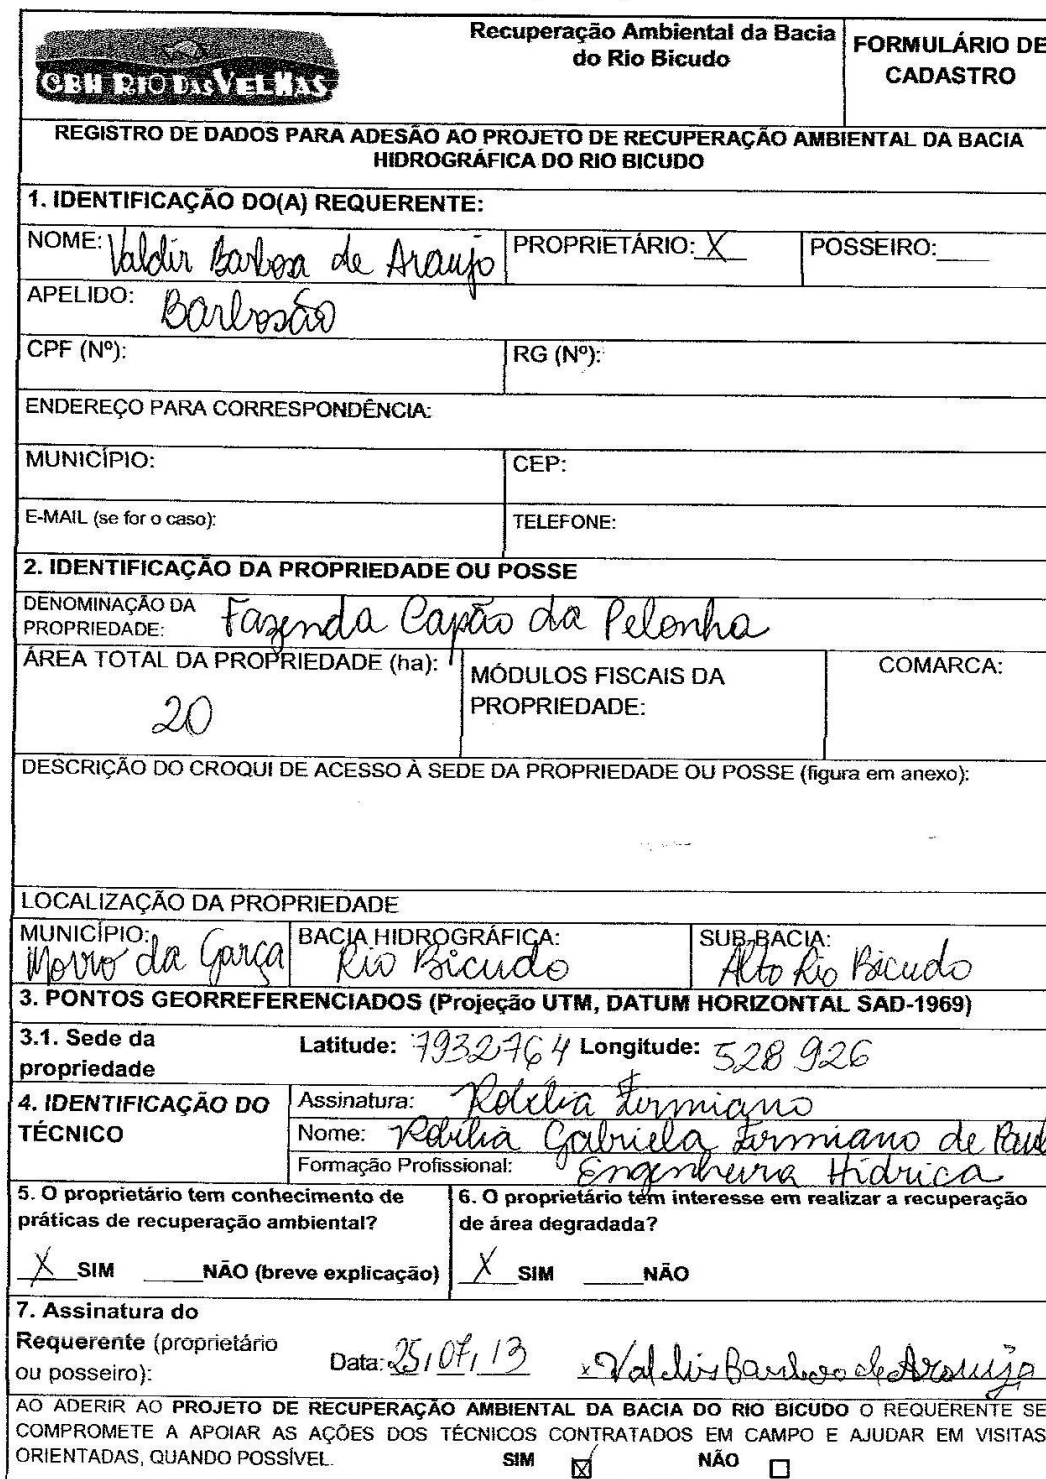 CBH RIO DAS VELHAS
Recuperação Ambiental da Bacia
do Rio Bicudo
FORMULÁRIO DE
CADASTRO
REGISTRO DE DADOS PARA ADESÃO AO PROJETO DE RECUPERAÇÃO AMBIENTAL DA BACIA
HIDROGRÁFICA DO RIO BICUDO
1. IDENTIFICAÇÃO DO(A) REQUERENTE:
NOME: Valdir Barbosa de Araujo PROPRIETÁRIO: X POSSEIRO:____
APELIDO: Barbosão
CPF (Nº): RG (Nº):
ENDEREÇO PARA CORRESPONDÊNCIA:
MUNICÍPIO: CEP:
E-MAIL (se for o caso): TELEFONE:
2. IDENTIFICAÇÃO DA PROPRIEDADE OU POSSE
DENOMINAÇÃO DA
PROPRIEDADE: Fazenda Capão da Pelonha
ÁREA TOTAL DA PROPRIEDADE (ha):
20
MÓDULOS FISCAIS DA
PROPRIEDADE:
COMARCA:
DESCRIÇÃO DO CROQUI DE ACESSO À SEDE DA PROPRIEDADE OU POSSE (figura em anexo):
LOCALIZAÇÃO DA PROPRIEDADE
MUNICÍPIO: Morro da Garça
BACIA HIDROGRÁFICA: Rio Bicudo
SUB-BACIA: Alto Rio Bicudo
3. PONTOS GEORREFERENCIADOS (Projeção UTM, DATUM HORIZONTAL SAD-1969)
3.1. Sede da
propriedade
Latitude: 7932764 Longitude: 528 926
4. IDENTIFICAÇÃO DO
TÉCNICO
Assinatura: Firmiano
Nome: Gabriela Firmiano de Paul
Formação Profissional: Engenheira Hídrica
5. O proprietário tem conhecimento de
práticas de recuperação ambiental?
X SIM _____NÃO (breve explicação)
6. O proprietário tem interesse em realizar a recuperação
de área degradada?
X SIM _____NÃO
7. Assinatura do
Requerente (proprietário
ou posseiro):
Data: 25/07/13 x Valdir Barboso de Araujo
AO ADERIR AO PROJETO DE RECUPERAÇÃO AMBIENTAL DA BACIA DO RIO BICUDO O REQUERENTE SE
COMPROMETE A APOIAR AS AÇÕES DOS TÉCNICOS CONTRATADOS EM CAMPO E AJUDAR EM VISITAS
ORIENTADAS, QUANDO POSSÍVEL. SIM ☒ NÃO ☐